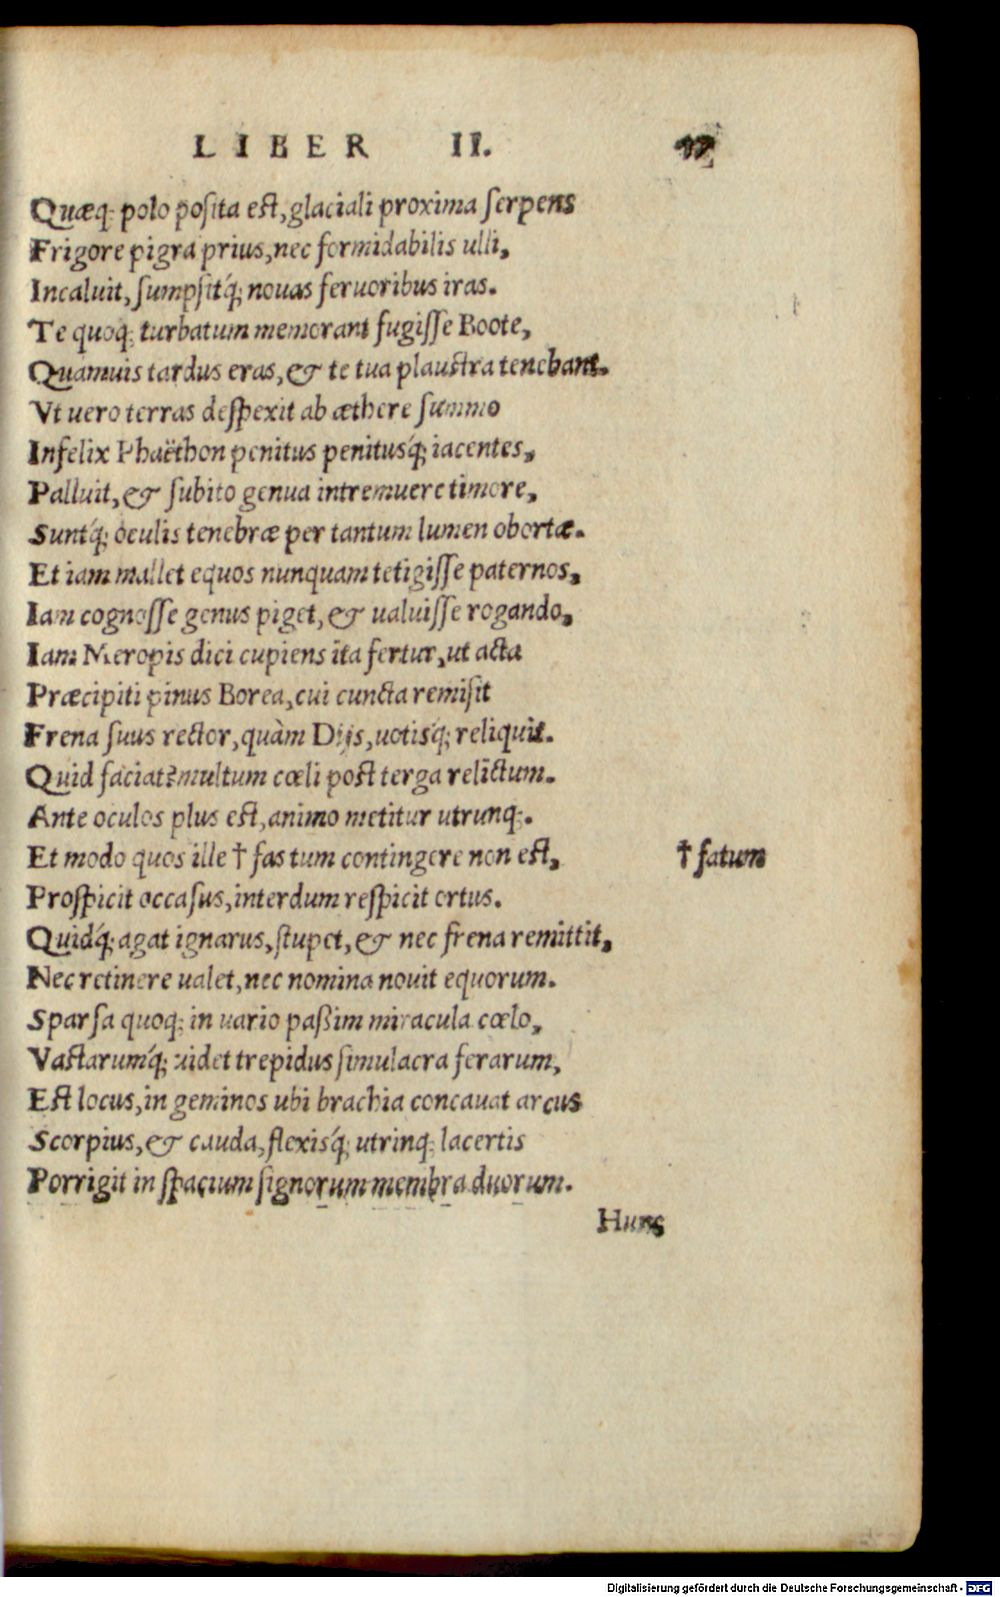 LIBER II. 17
Quæq; polo posita est, glaciali proxima serpens
Frigore pigra prius, nec formidabilis ulli,
Incaluit, sumpsitq́; nouas feruoribus iras.
Te quoq; turbatum memorant fugisse Boote,
Quamuis tardus eras, & te tua plaustra tenebant.
Vt uero terras despexit ab æthere summo
Infelix Phaëthon penitus penitusq́; iacentes,
Palluit, & subito genua intremuere timore,
Suntq́; oculis tenebræ per tantum lumen obortæ.
Et iam mallet equos nunquam tetigisse paternos,
Iam cognosse genus piget, & ualuisse rogando,
Iam Meropis dici cupiens ita fertur, ut acta
Præcipiti pinus Borea, cui cuncta remisit
Frena suus rector, quàm Dijs, uotisq́; reliquit.
Quid faciat? multum cœli post terga relictum.
Ante oculos plus est, animo metitur utrunq;.
Et modo quos ille † fas tum contingere non est, † fatum
Prospicit occasus, interdum respicit ortus.
Quidq́; agat ignarus, stupet, & nec frena remittit,
Nec retinere ualet, nec nomina nouit equorum.
Sparsa quoq; in uario paßim miracula cœlo,
Vastarumq́; uidet trepidus simulacra ferarum,
Est locus, in geminos ubi brachia concauat arcus
Scorpius, & cauda, flexisq́; utrinq; lacertis
Porrigit in spacium signorum membra duorum.
Hunc
Digitalisierung gefördert durch die Deutsche Forschungsgemeinschaft - DFG